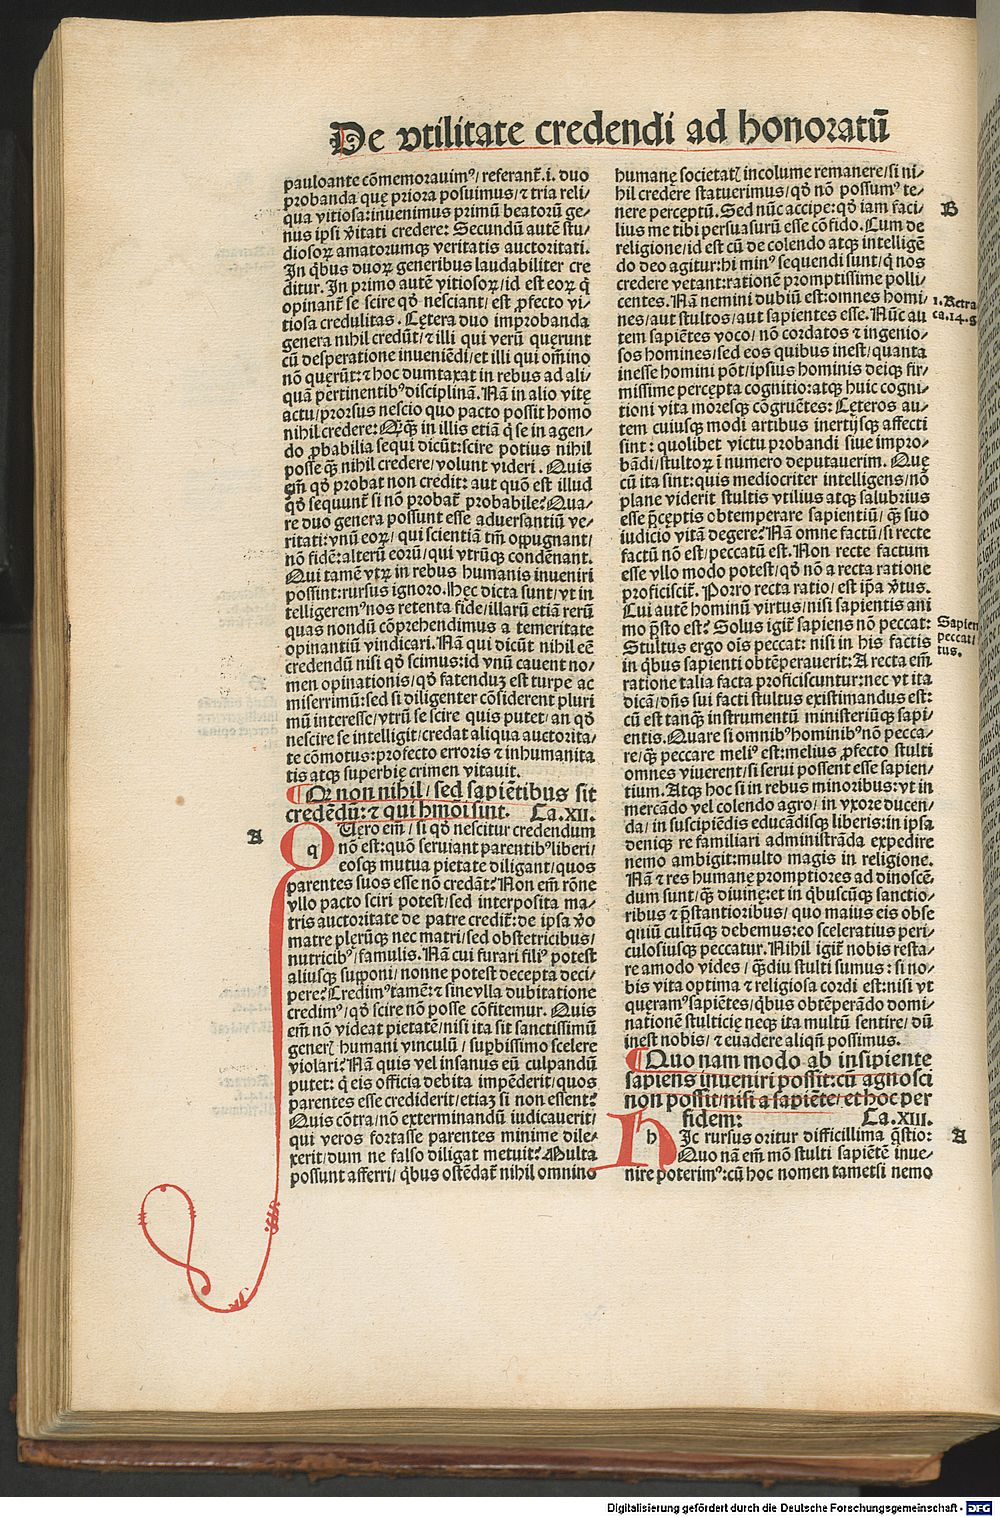 De vtilitate credendi ad honoratū
pauloante cōmemorauimꝰ/ referant̄. i. duo
probanda quę priora posuimus/ ⁊ tria reli⸗
qua vitiosa: inuenimus primū beatorū ge⸗
nus ipsi v̄itati credere: Secundū autē stu⸗
diosoꝝ amatorumqꝫ veritatis auctoritati.
In q̄bus duoꝝ generibus laudabiliter cre
ditur. In primo autē vitiosoꝝ/ id est eoꝝ q̄
opinant̄ se scire qð nesciant/ est ꝓfecto vi⸗
tiosa credulitas. Cętera duo improbanda
genera nihil credūt/ ⁊ illi qui verū querunt
cū desperatione inueniēdi/ et illi qui om̄ino
nō querūt: ⁊ hoc dumtaxat in rebus ad ali⸗
quā pertinentibꝰ disciplinā. Nā in alio vitę
actu/ prorsus nescio quo pacto possit homo
nihil credere: Qꝙ̄ in illis etiā q̄ se in agen⸗
do ꝓbabilia sequi dicūt: scire potius nihil
posse qꝫ̄ nihil credere/ volunt videri. Quis
em̄ qð probat non credit: aut quō est illud
qð sequunt̄ si nō probat̄ probabile? Qua⸗
re duo genera possunt esse aduersantiū ve⸗
ritati: vnū eoꝝ/ qui scientiā tm̄ oppugnant/
nō fidē: alterū eorū/ qui vtrūqꝫ condēnant.
Qui tamē vtꝝ in rebus humanis inueniri
possint: rursus ignoro. Hęc dicta sunt/ vt in
telligeremꝰ nos retenta fide/ illarū etiā rerū
quas nondū cōprehendimus a temeritate
opinantiū vindicari. Nā qui dicūt nihil eē
credendū nisi qð scimus: id vnū cauent no⸗
men opinationis/ qð fatenduꝫ est turpe ac
miserrimū: sed si diligenter cōsiderent pluri
mū interesse/ vtrū se scire quis putet/ an qð
nescire se intelligit/ credat aliqua auctorita⸗
te cōmotus: profecto erroris ⁊ inhumanita
tis atqꝫ superbię crimen vitauit.
¶ Qꝛ non nihil/ sed sapiētibus sit
credēdū: ⁊ qui hmōi sint. Ca. XII.
A
q Uęro em̄/ si qð nescitur credendum
nō est: quō seruiant parentibꝰ liberi/
eosqꝫ mutua pietate diligant/ quos
parentes suos esse nō credāt? Non em̄ rōne
vllo pacto sciri potest/ sed interposita ma⸗
tris auctoritate de patre credit̄: de ipsa v̄o
matre plęrūqꝫ nec matri/ sed obstetricibus/
nutricibꝰ/ famulis. Nā cui furari filiꝰ potest
aliusqꝫ supponi/ nonne potest decepta deci⸗
pere? Credimꝰ tamē: ⁊ sine vlla dubitatione
credimꝰ/ qð scire nō posse cōfitemur. Quis
em̄ nō videat pietatē/ nisi ita sit sanctissimū
generꝭ humani vinculū/ suꝑbissimo scelere
violari? Nā quis vel insanus eū culpandū
putet: q̄ eis officia debita impēderit/ quos
parentes esse crediderit/ etiaꝫ si non essent?
Quis cōtra/ nō exterminandū iudicauerit/
qui veros fortasse parentes minime dile⸗
xerit/ dum ne falso diligat metuit? Multa
possunt afferri/ q̄bus ostēdat̄ nihil omnino
humanę societatꝭ incolume remanere/ si ni⸗
hil credere statuerimus/ qð nō possumꝰ te⸗
nere perceptū. Sed nūc accipe: qð iam faci⸗
lius me tibi persuasurū esse cōfido. Cum de
religione/ id est cū de colendo atqꝫ intelligē
do deo agitur: hi minꝰ sequendi sunt/ q̄ nos
credere vetant: rationē promptissime polli⸗
centes. Nā nemini dubiū est: omnes homi⸗
nes/ aut stultos/ aut sapientes esse. Nūc au
tem sapiētes voco/ nō cordatos ⁊ ingenio⸗
sos homines/ sed eos quibus inest/ quanta
inesse homini pōt/ ipsius hominis deiqꝫ fir⸗
missime percepta cognitio: atqꝫ huic cogni⸗
tioni vita moresqꝫ cōgruētes: Cęteros au⸗
tem cuiusqꝫ modi artibus inertijsqꝫ affecti
sint: quolibet victu probandi siue impro⸗
bādi/ stultoꝝ ī numero deputauerim. Quę
cū ita sint: quis mediocriter intelligens/ nō
plane viderit stultis vtilius atqꝫ salubrius
esse p̄ceptis obtemperare sapientiū/ qꝫ̄ suo
iudicio vitā degere? Nā omne factū/ si recte
factū nō est/ peccatū est. Non recte factum
esse vllo modo potest/ qð nō a recta ratione
proficiscit̄. Porro recta ratio/ est ip̄a v̄tus.
Cui autē hominū virtus/ nisi sapientis ani
mo p̄sto est? Solus igit̄ sapiens nō peccat:
Stultus ergo ois peccat: nisi in his factis
in q̄bus sapienti obtēperauerit: A recta em̄
ratione talia facta proficiscuntur: nec vt ita
dicā/ dn̄s sui facti stultus existimandus est:
cū est tanqꝫ̄ instrumentū ministeriūqꝫ sapi⸗
entis. Quare si omnibꝰ hominibꝰ nō pecca⸗
re/ qꝫ̄ peccare meliꝰ est: melius ꝓfecto stulti
omnes viuerent/ si serui possent esse sapien⸗
tium. Atqꝫ hoc si in rebus minoribus: vt in
mercādo vel colendo agro/ in vxore ducen⸗
da/ in suscipiēdis educādisqꝫ liberis: in ipsa
deniqꝫ re familiari administrāda expedire
nemo ambigit: multo magis in religione.
Nā ⁊ res humanę promptiores ad dinoscē⸗
dum sunt/ qꝫ̄ diuinę: et in q̄buscūqꝫ sanctio⸗
ribus ⁊ p̄stantioribus/ quo maius eis obse
quiū cultūqꝫ debemus: eo sceleratius peri⸗
culosiusqꝫ peccatur. Nihil igit̄ nobis resta⸗
re amodo vides/ qꝫ̄diu stulti sumus: si no⸗
bis vita optima ⁊ religiosa cordi est: nisi vt
queramꝰ sapiētes/ q̄bus obtēperādo domi⸗
nationē stulticię neqꝫ ita multū sentire/ dū
inest nobis/ ⁊ euadere aliqn̄ possimus.
¶ Quo nam modo ab insipiente
sapiens inueniri possit: cū agnosci
non possit/ nisi a sapiēte/ et hoc per
fidem: Ca. XIII.
h Ic rursus oritur difficillima q̄stio:
Quo nā em̄ mō stulti sapiētē inue⸗
nire poterimꝰ: cū hoc nomen tametsi nemo
B
1. Retra
ca. 14. g
Sapien
peccat/
tus.
A
Digitalisierung gefördert durch die Deutsche Forschungsgemeinschaft - DFG